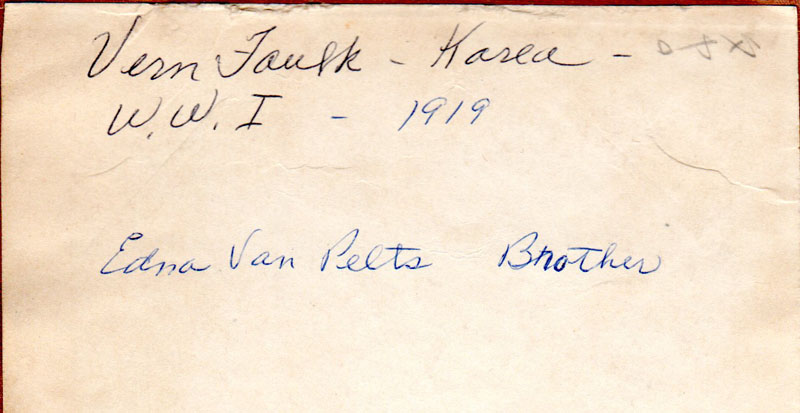 Vern Faulk - Korea -
W.W. I - 1919
Edna Van Pelts Brother